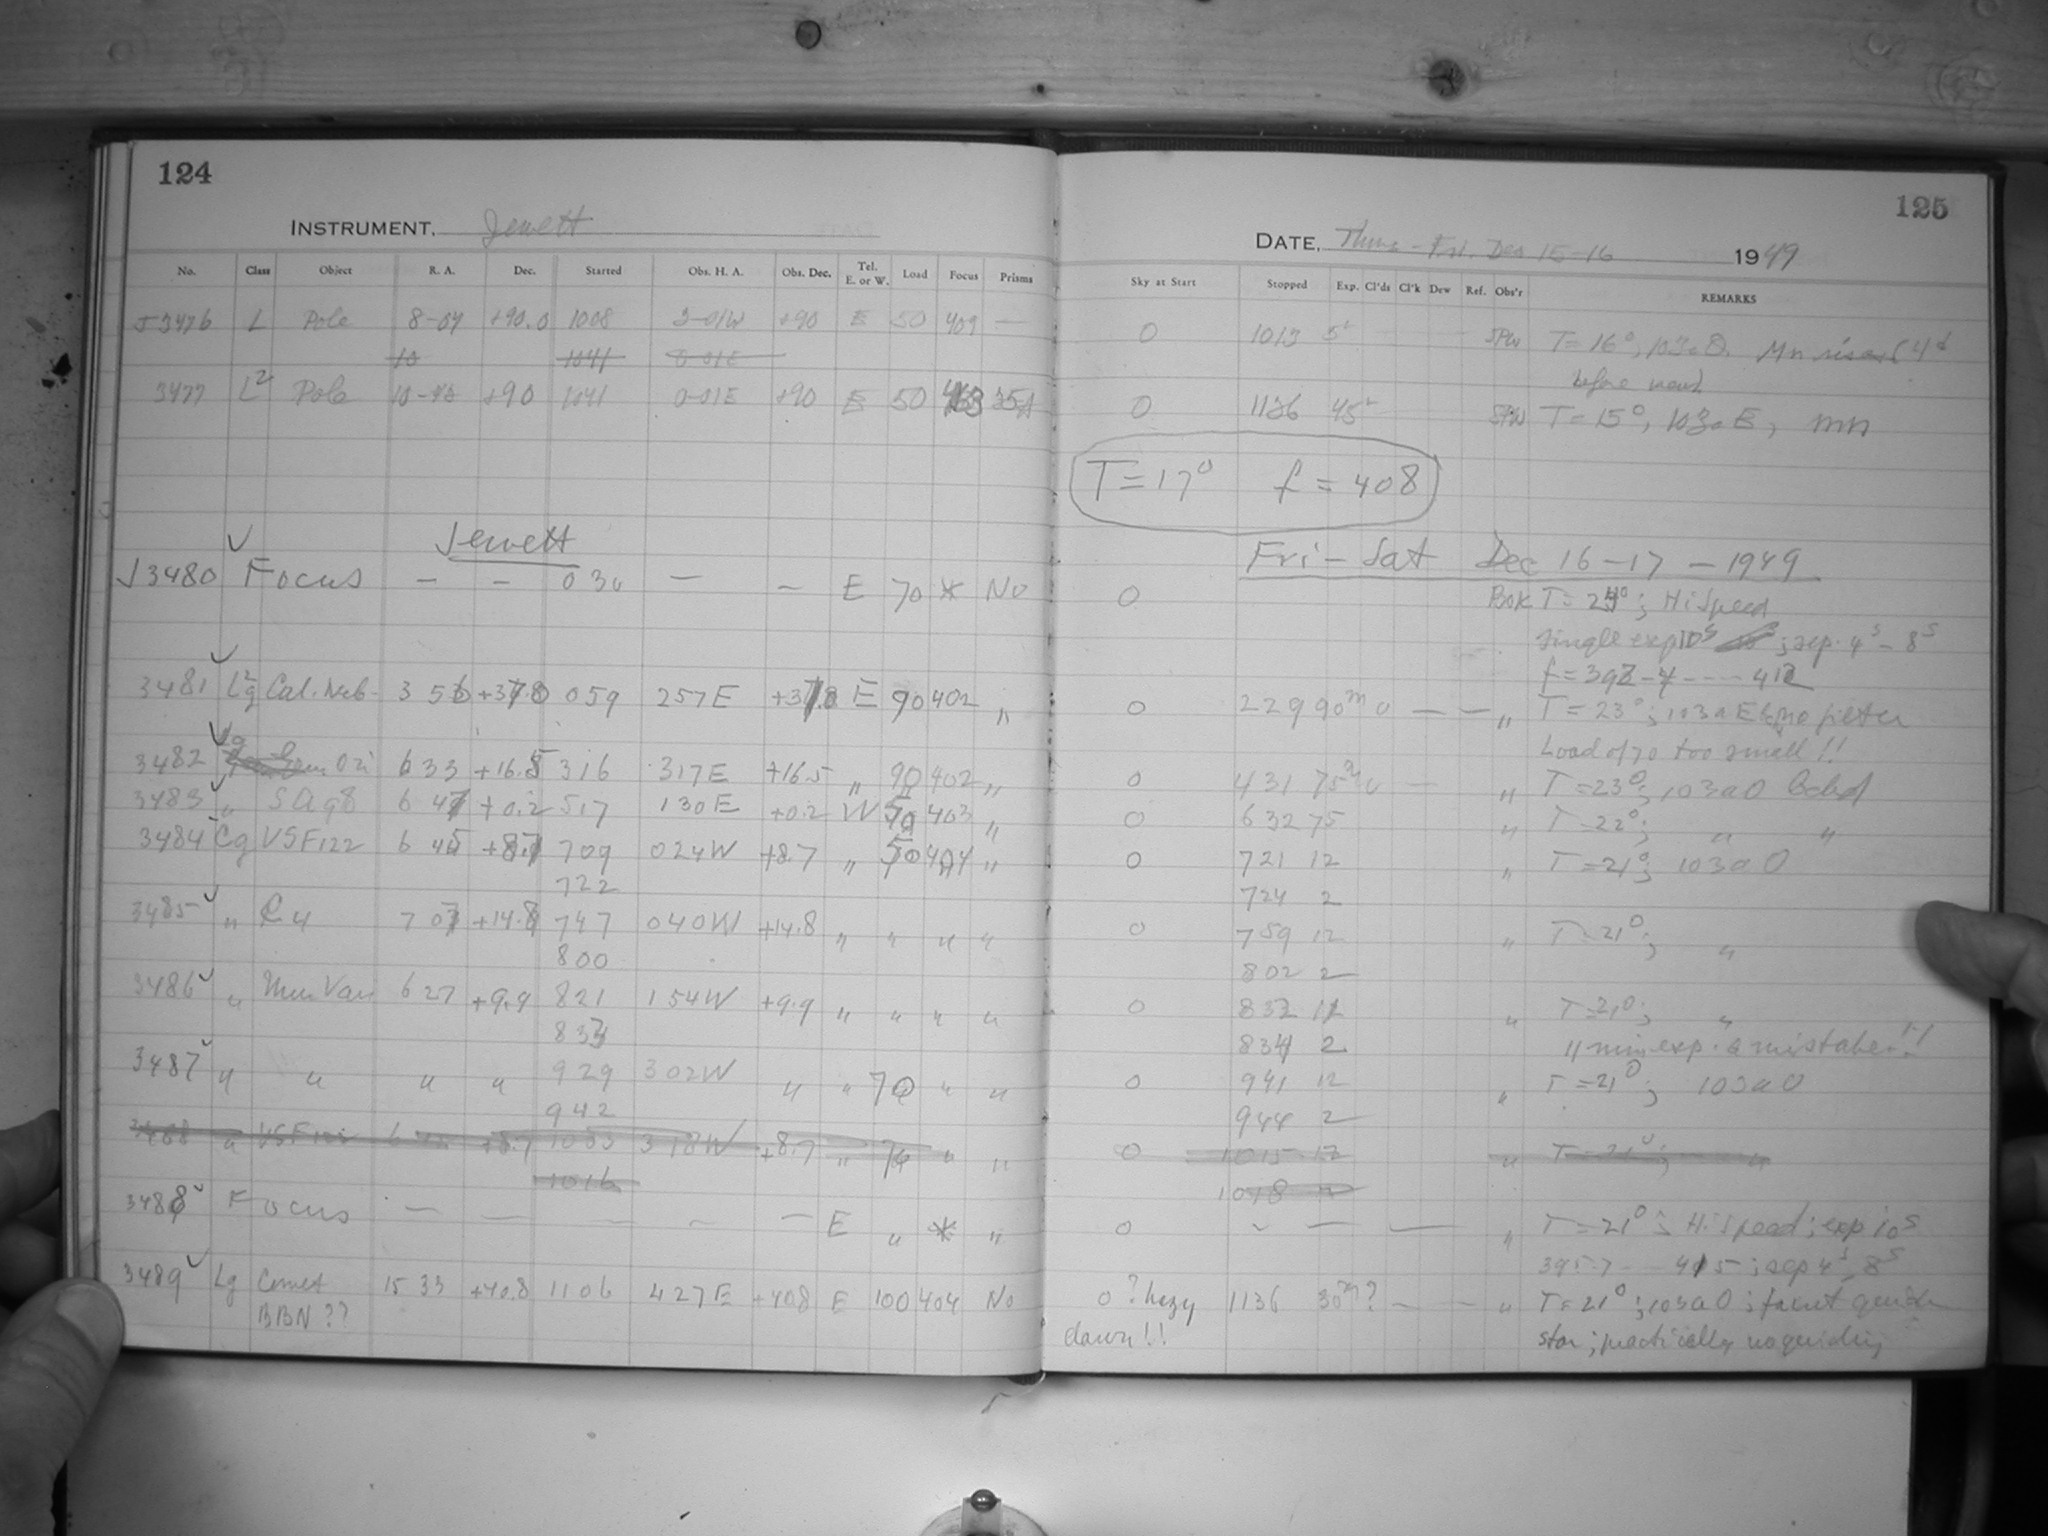 124
INSTRUMENT. Jewett
No. Class Object R. A. Dec. Started Obs. H. A. Obs. Dec. Tel. E. or W. Load Focus Prisms
J3476 L Pole 8-04 +90.0 1008 3-01W +90 E 50 409 —
10 1041 0-01E
3477 L2 Pole 10- +90 1041 0-01E +90 E 50 35A
Jewett
J3480 Focus — — 030 — — E 70 * No
3481 L2g Cal. Neb. 3 56 +37.8 059 257E +37.8 E 90 402 "
3482 Lg Ori 633 +16.5 316 317E +16.5 " 90 402 "
3483 " SA98 6 47 +0.2 517 130E +0.2 W 50 403 "
3484 Cg VSF122 6 45 +8.7 709 024W +8.7 " 50 404 "
722
3485 " 7 07 +14.8 747 040W +14.8 " " " "
800
3486 " Mun Van 627 +9.9 821 154W +9.9 " " " "
833
3487 " " " " 929 302W " " 70 " "
942
3488 " VSF122 6 +8.7 1003 318W +8.7 " 70 " "
1016
3488 Focus — — — — — E " * "
3489 Lg Comet 15 33 +40.8 1106 427E +40.8 E 100 404 No
BBN ??
125
DATE. Thurs-Fri. Dec 15-16 1949
Sky at Start Stopped Exp. Cl'ds Cl'k Dew Ref. Obs'r REMARKS
0 1013 5 SPW T=16°, 103aO. Mn
before
0 1126 45 SPW T=15°, 103aE, mn
T=17° f=408
Fri-Sat Dec 16-17-1949
0 Bok T= ; Hi Speed
single exp 10s ; sep. 4s-8s
f=392-4 - - - - 412
0 229 90m 0 — — " T=23°; 103aE & no filter
Load of 70 too small!!
0 431 75m 0 — " T=23°; 103aO
0 632 75 " T=22°; " "
0 721 12 " T=21°; 103aO
724 2
0 759 12 " T=21°; "
802 2
0 832 11 " T=21°; "
834 2 11 min exp. a mistake!!
0 941 12 " T=21°; 103aO
944 2
0 1015 12 " T=21°; "
1018 2
0 ~ — — " T=21°; Hi Speed; exp 10s
395.7 - - - 415; sep 4s, 8s
0 ? hazy 1136 30m? — — " T=21°; 103aO; faint guide
dawn!! star; practically no guiding